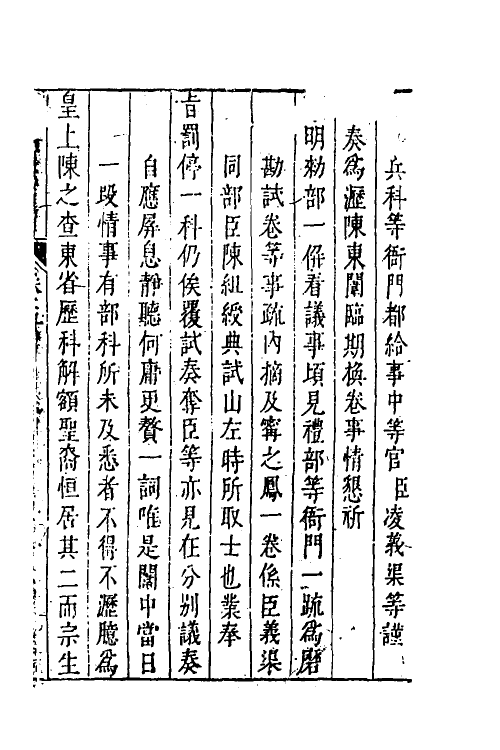 兵科等衙門都給事中等官臣凌義渠等謹
奏為瀝陳東闈臨期換卷事情懇祈
明勑部一併看議事頃見禮部等衙門一疏為磨
勘試卷等事疏內摘及甯之鳳一卷係臣義渠
同部臣陳組綬典試山左時所取士也業奉
旨罰停一科仍俟覆試奏奪臣等亦見在分別議奏
自應屏息靜聽何庸更贅一詞唯是闈中當日
一段情事有部科所未及悉者不得不瀝臆為
皇上陳之查東省歷科解額聖裔恒居其二而宗生